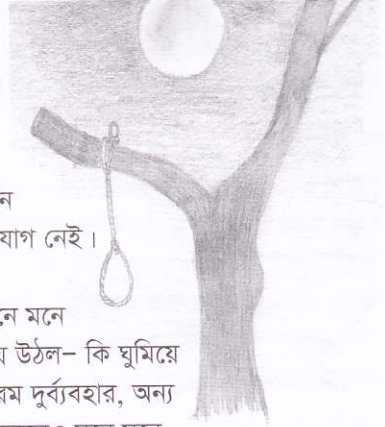 ন
যাগ নেই।
নে মনে
উঠল– কি ঘুমিয়ে
রম দুর্ব্যবহার, অন্য